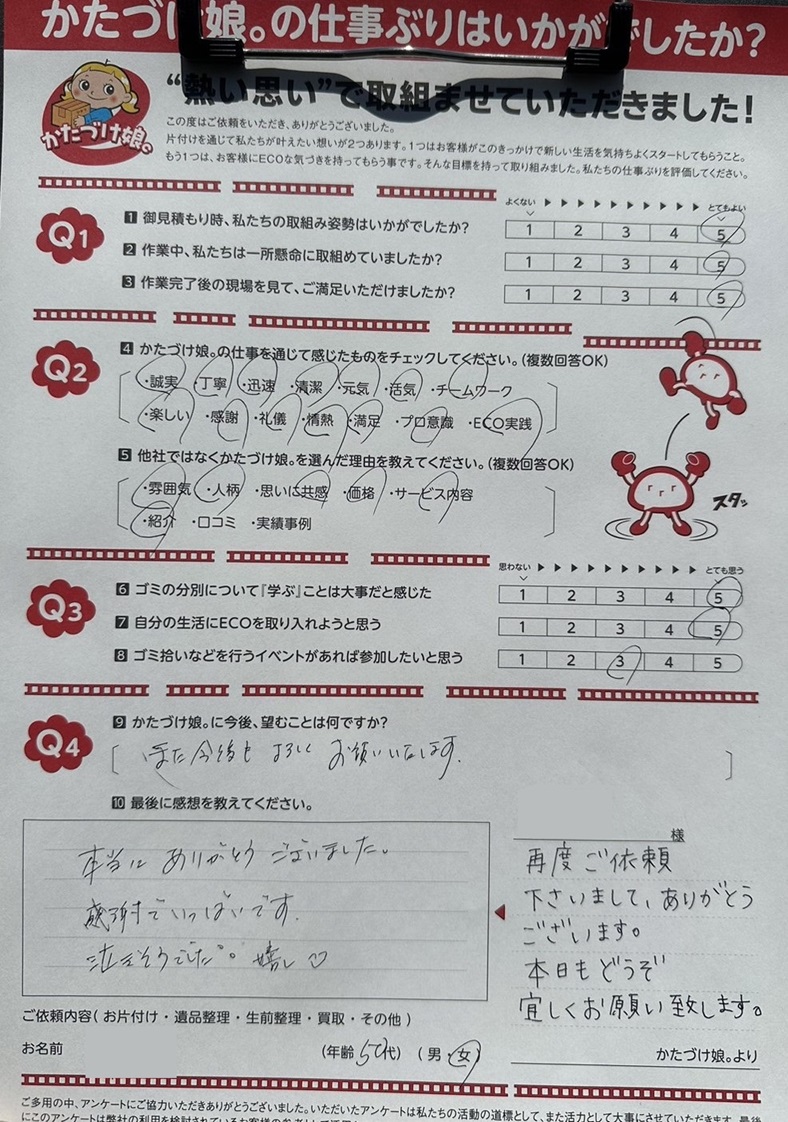 かたづけ娘。の仕事ぶりはいかがでしたか?
“熱い思い”で取組ませていただきました!
かたづけ娘。
この度はご依頼をいただき、ありがとうございました。
片付けを通じて私たちが叶えたい想いが2つあります。1つはお客様がこのきっかけで新しい生活を気持ちよくスタートしてもらうこと。
もう1つは、お客様にECOな気づきを持ってもらう事です。そんな目標を持って取り組みました。私たちの仕事ぶりを評価してください。
よくない ▶▶▶▶▶▶▶▶▶▶ とてもよい
Q1
1 御見積もり時、私たちの取組み姿勢はいかがでしたか? 1 2 3 4 5
2 作業中、私たちは一所懸命に取組めていましたか? 1 2 3 4 5
3 作業完了後の現場を見て、ご満足いただけましたか? 1 2 3 4 5
Q2
4 かたづけ娘。の仕事を通じて感じたものをチェックしてください。(複数回答OK)
・誠実 ・丁寧 ・迅速 ・清潔 ・元気 ・活気 ・チームワーク
・楽しい ・感謝 ・礼儀 ・情熱 ・満足 ・プロ意識 ・ECO実践
5 他社ではなくかたづけ娘。を選んだ理由を教えてください。(複数回答OK)
・雰囲気 ・人柄 ・思いに共感 ・価格 ・サービス内容
・紹介 ・口コミ ・実績事例
スタッ
思わない ▶▶▶▶▶▶▶▶▶▶ とても思う
Q3
6 ゴミの分別について『学ぶ』ことは大事だと感じた 1 2 3 4 5
7 自分の生活にECOを取り入れようと思う 1 2 3 4 5
8 ゴミ拾いなどを行うイベントがあれば参加したいと思う 1 2 3 4 5
Q4
9 かたづけ娘。に今後、望むことは何ですか?
また今後も よろしく お願いいたします.
10 最後に感想を教えてください。
本当に ありがとう ございました。
感謝でいっぱいです.
泣きそうでした。嬉し♡
様
再度ご依頼
下さいまして、ありがとう
ございます。
本日もどうぞ
宜しくお願い致します。
かたづけ娘。より
ご依頼内容( お片付け・遺品整理・生前整理・買取・その他 )
お名前 (年齢 50代) ( 男・女)
ご多用の中、アンケートにご協力いただきありがとうございました。いただいたアンケートは私たちの活動の道標として、また活力として大事にさせていただきます。最後